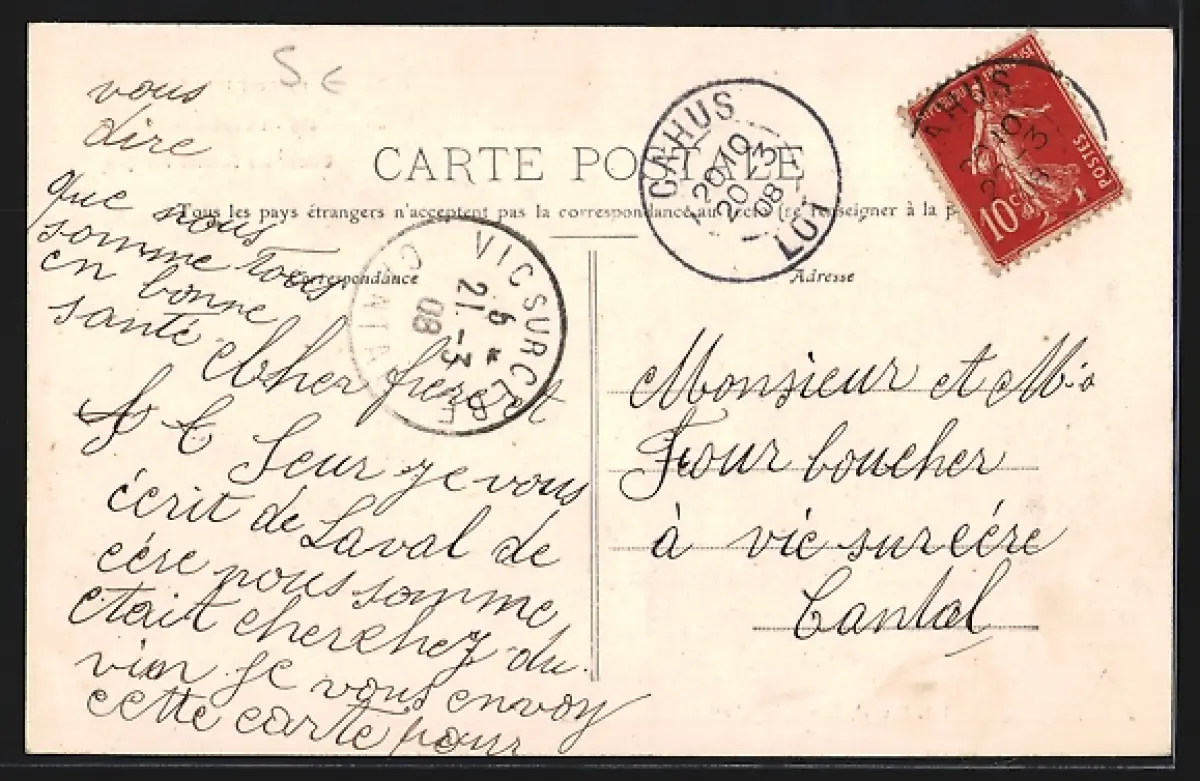 S E
CARTE POSTALE
Tous les pays étrangers n'acceptent pas la correspondance au recto (se renseigner à la p
Correspondance
Adresse
CAHUS
20 10
20 3
08
LOT
AHUS
20 10
20 3
08
POSTES
10 c
VIC SUR CERE
6 *
21 -3
08
CANTAL
Cher frere et
Seur je vous
écrit de Laval de
cére nous somme
etait cherchez du
vin je vous envoy
cette carte pour
vous
dire
que nous
somme tous
en bonne
santé
Monsieur et M
Four boucher
à vic sur cére
Cantal